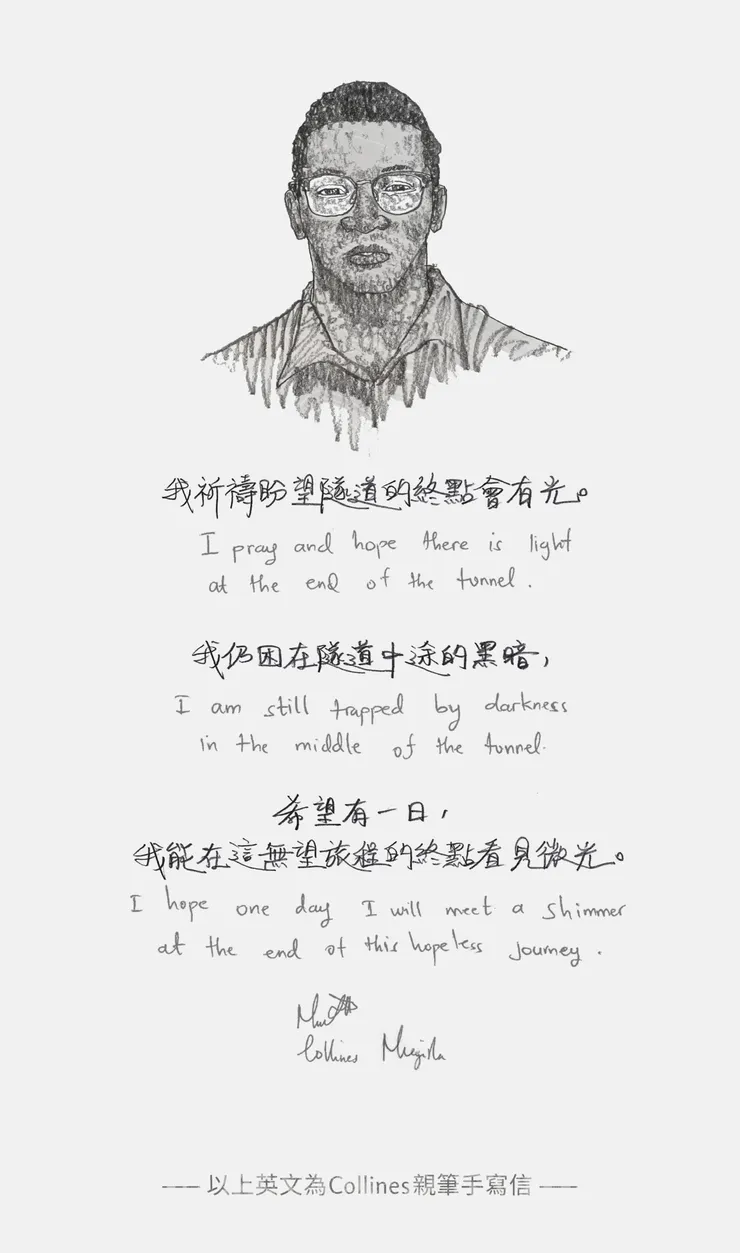 我祈禱盼望隧道的終點會有光。
I pray and hope there is light
at the end of the tunnel.
我仍困在隧道中途的黑暗，
I am still trapped by darkness
in the middle of the tunnel.
希望有一日，
我能在這無望旅程的終點看見微光。
I hope one day I will meet a shimmer
at the end of this hopeless journey.
Collines
以上英文為Collines親筆手寫信